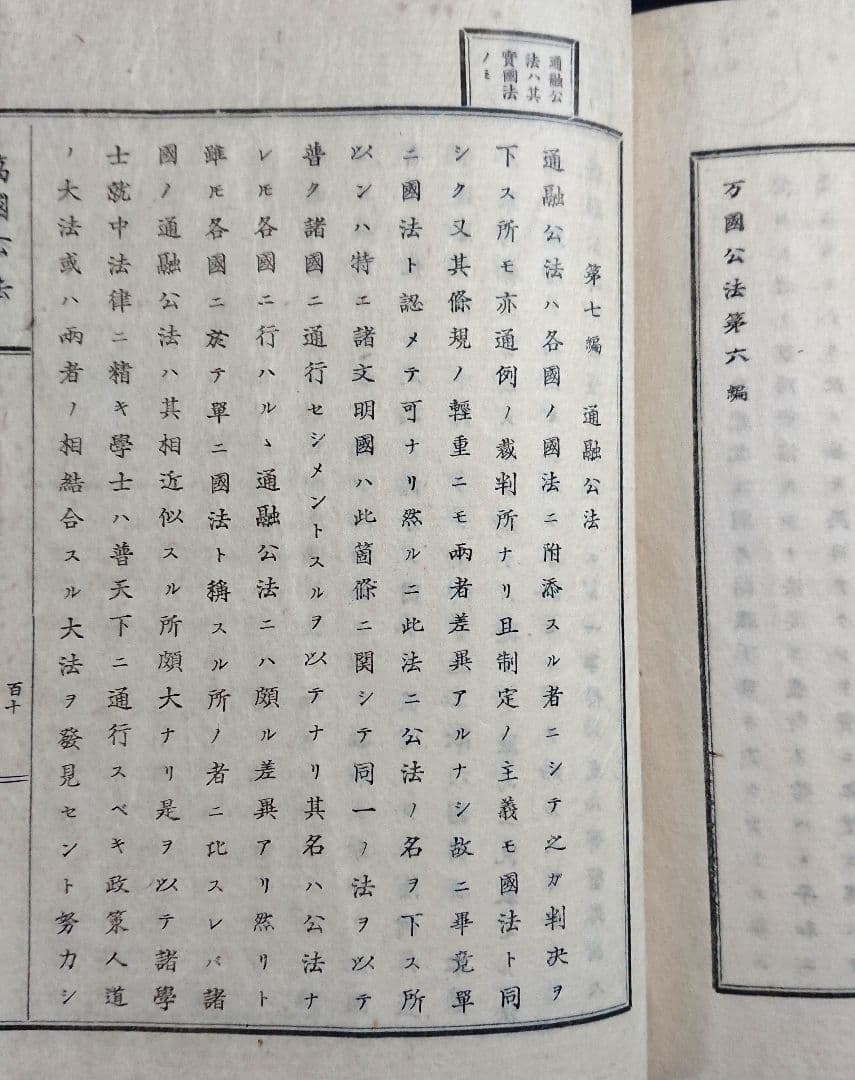 万國公法第六編
通融公
法ハ其
實國法
ノミ
第七編 通融公法
通融公法ハ各國ノ國法ニ附添スル者ニシテ之ガ判決ヲ
下ス所モ亦通例ノ裁判所ナリ且制定ノ主義モ國法ト同
シク又其條規ノ輕重ニモ兩者差異アルナシ故ニ畢竟單
ニ國法ト認メテ可ナリ然ルニ此法ニ公法ノ名ヲ下ス所
以ンハ特ニ諸文明國ハ此箇條ニ関シテ同一ノ法ヲ以テ
普ク諸國ニ通行セシメントスルヲ以テナリ其名ハ公法ナ
レモ各國ニ行ハルヽ通融公法ニハ頗ル差異アリ然リト
雖モ各國ニ於テ單ニ國法ト稱スル所ノ者ニ比スレバ諸
國ノ通融公法ハ其相近似スル所頗大ナリ是ヲ以テ諸學
士就中法律ニ精キ學士ハ普天下ニ通行スベキ政策人道
ノ大法或ハ兩者ノ相結合スル大法ヲ發見セント努力シ
萬國公法
百十